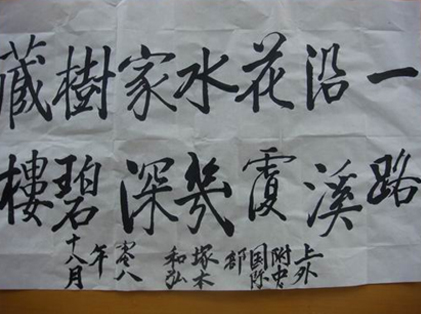 一路
沿溪
花覆
水幾
家深
樹碧
藏樓
上外
附中
国际
部
塚本
和弘
零八
年
十八月